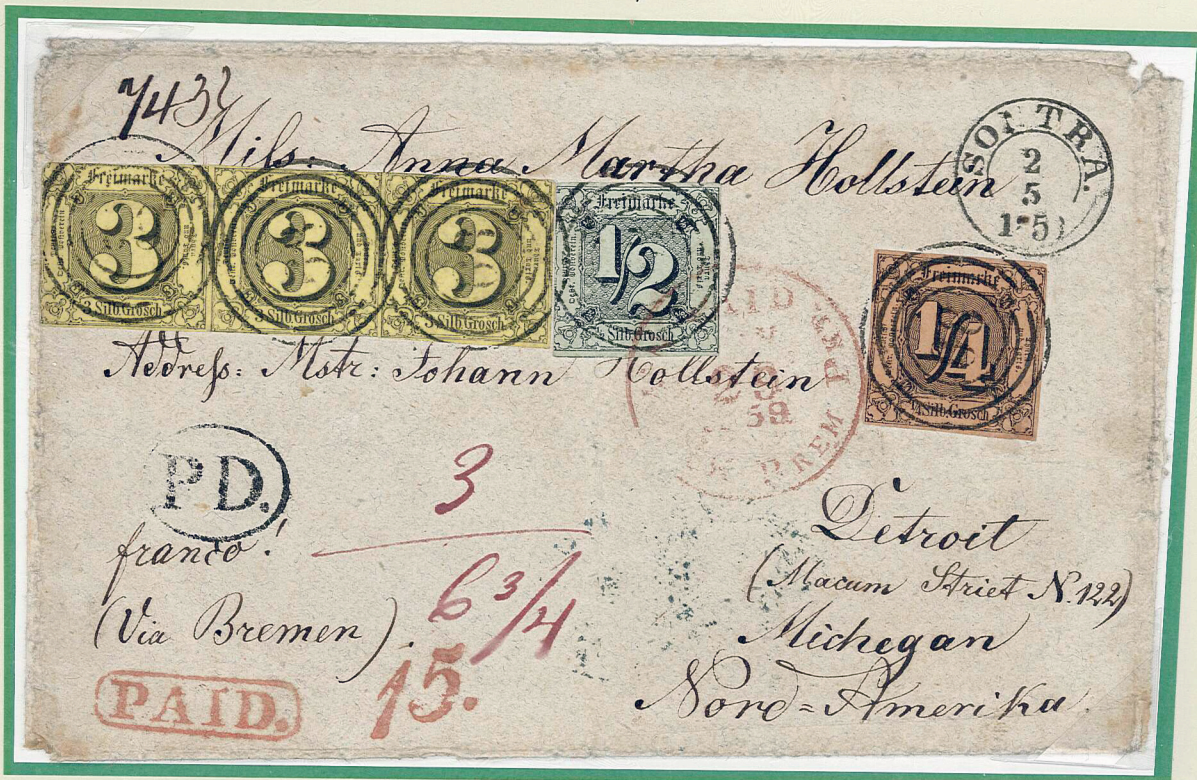 7432
Mils: Anna Martha Hollstein
SONTRA.
2
5
Freimarke
3
3 Silb. Grosch
Freimarke
3
3 Silb. Grosch
Freimarke
3
3 Silb. Grosch
Freimarke
1/2
1/2 Silb. Grosch
Freimarke
1/4
1/4 Silb. Grosch
PAID
59
BREM PKT
Address: Mstr: Johann Hollstein
PD.
3
franco!
6 3/4
(Via Bremen).
15.
PAID.
Detroit
(Macum Striet N. 122)
Michegan
Nord=Amerika.